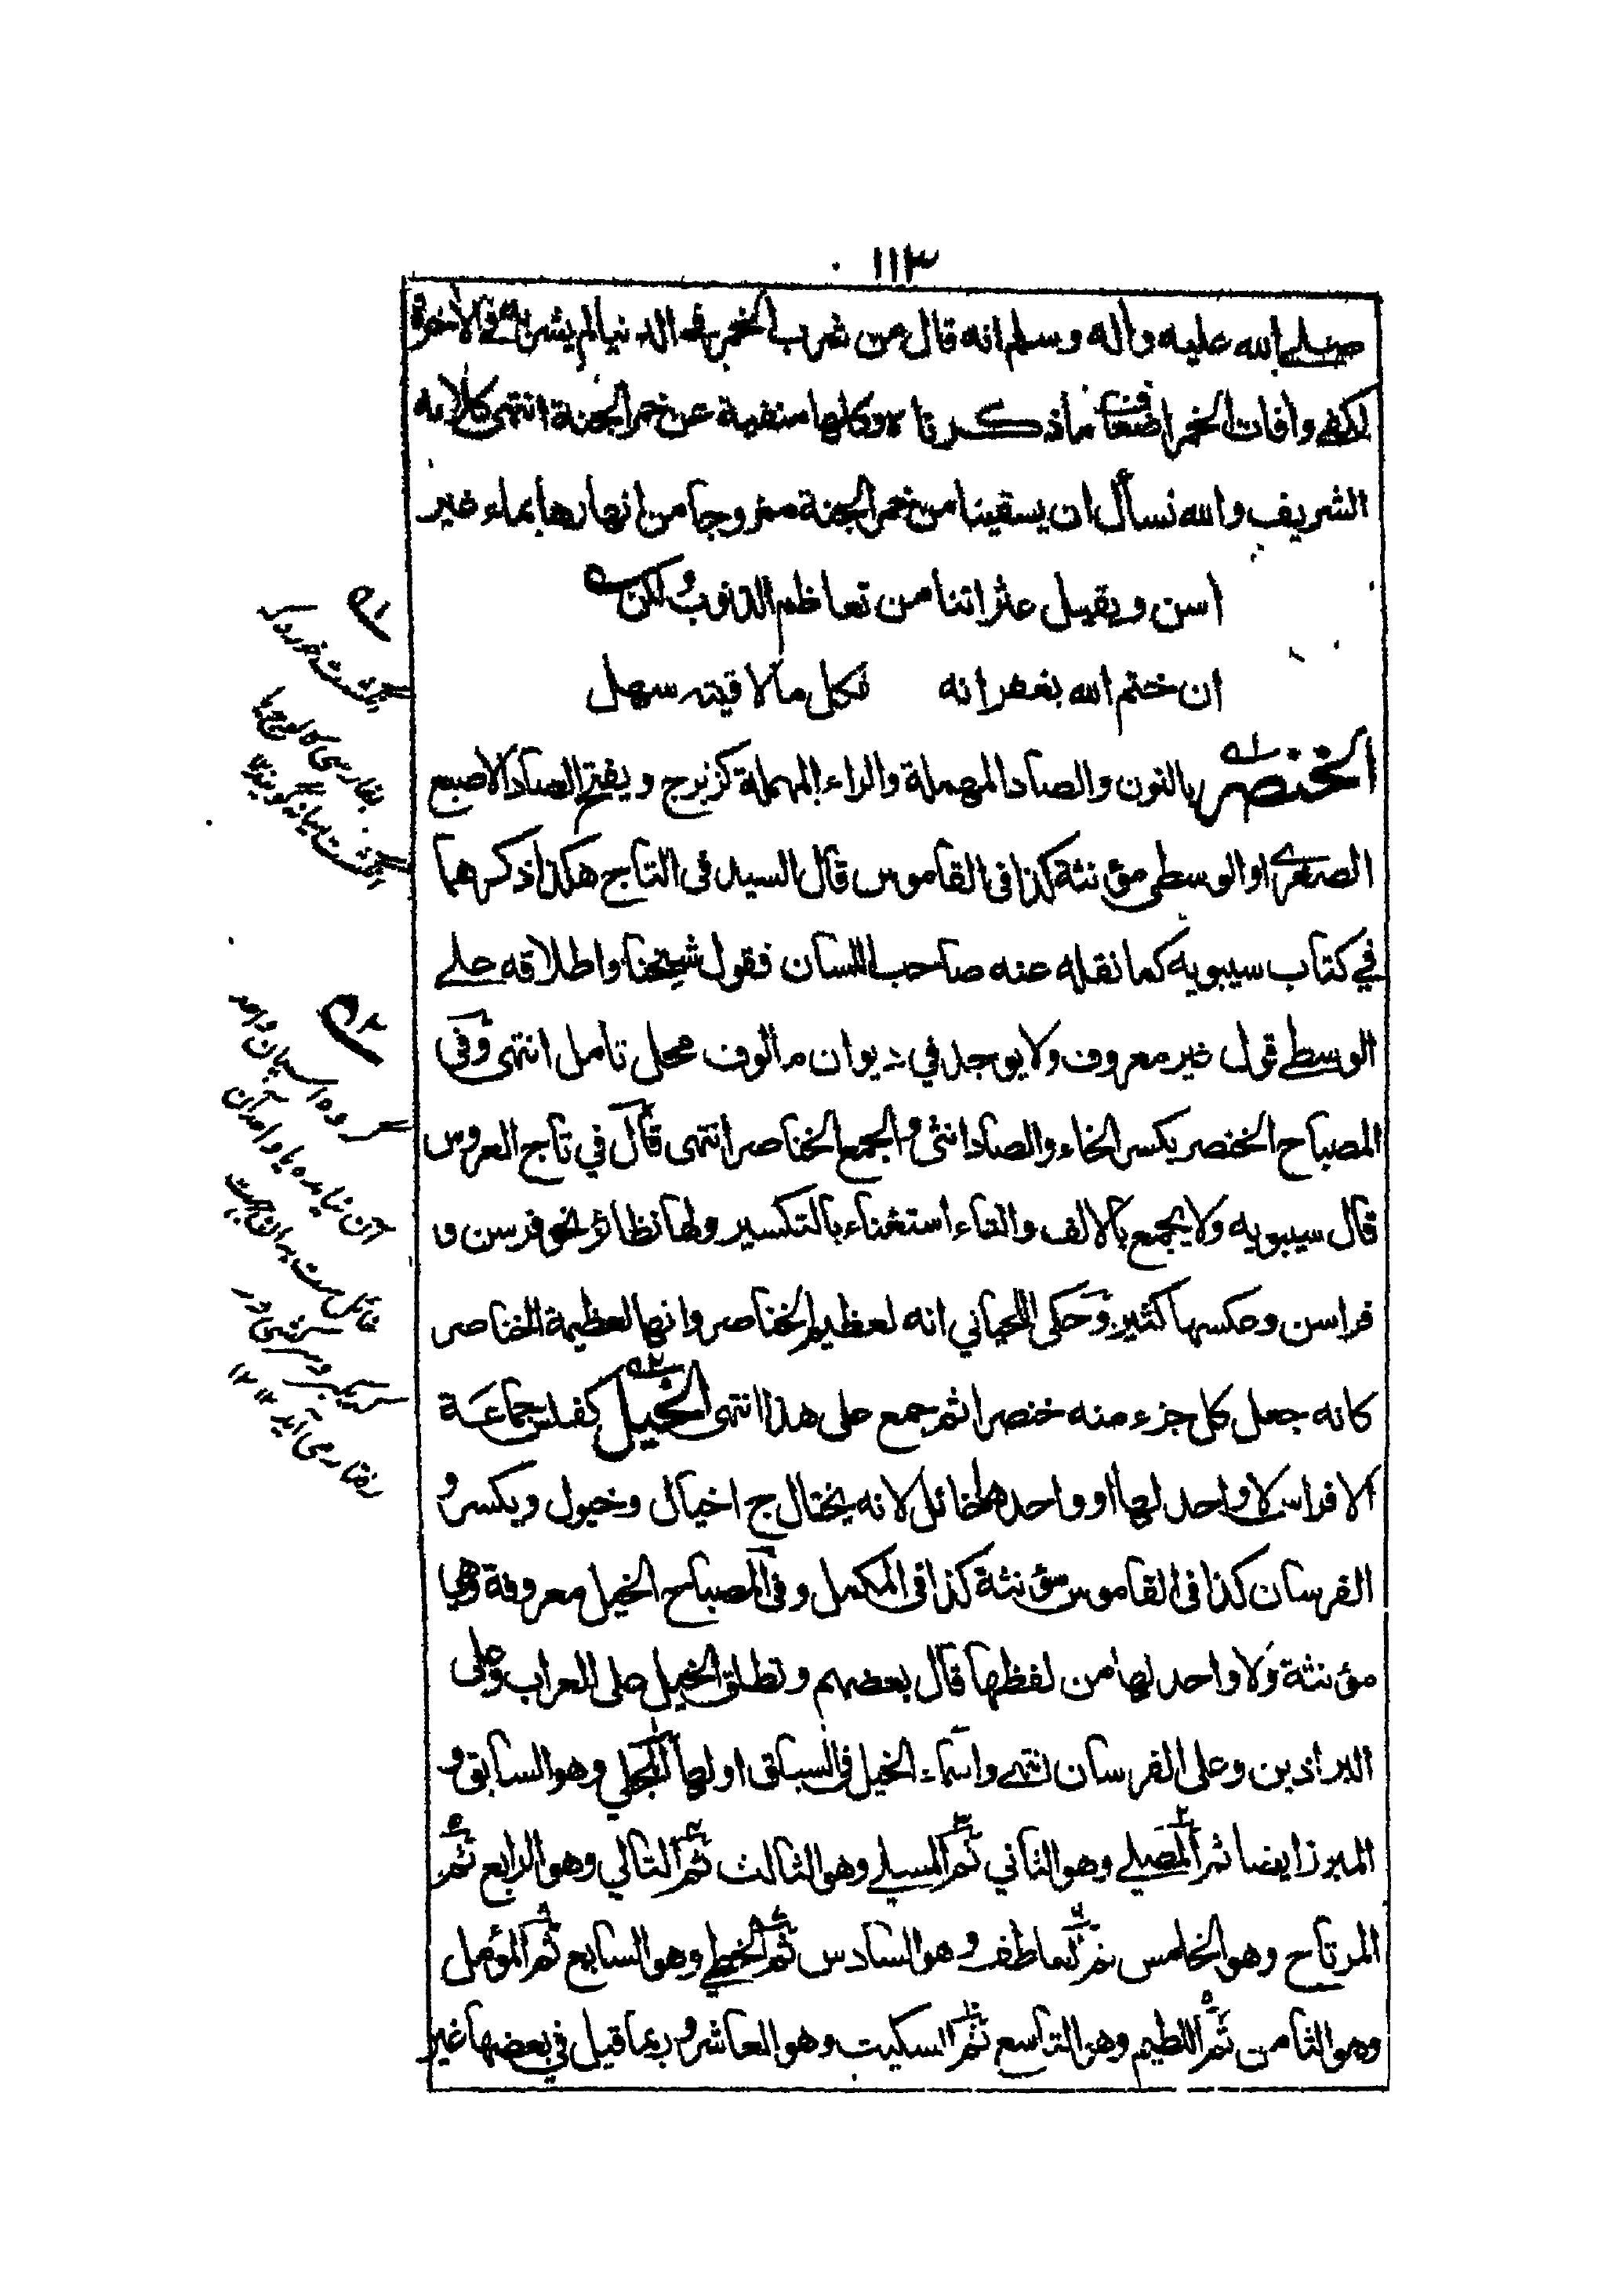 ١١٣
صلى الله عليه واله وسلم انه قال من شرب الخمر في الدنيا لم يشربها في الاخرة
لكفى وافات الخمر اضعاف ما ذكرناه وكلها منفية عن خمر الجنة انتهى كلامه
الشريف والله نسأل ان يسقينا من خمر الجنة ممزوجا من انهارها بماء غير
اسن ويقيل عثراتنا من تعاظم الذنوب لكن
ان ختم الله بغفرانه فكل ما لاقيته سهل
الخنصر بالنون والصاد المهملة والراء المهملة كزبرج ويفتح الصاد الاصبع
الصغرى او الوسطى مؤنثة كذا في القاموس قال السيد في التاج هكذا ذكرهما
في كتاب سيبويه كما نقله عنه صاحب اللسان فقول شيخنا واطلاقه على
الوسطى قول غير معروف ولا يوجد في ديوان مالوف محل تامل انتهى وفي
المصباح الخنصر بكسر الخاء والصاد انثى والجمع الخناصر انتهى قال في تاج العروس
قال سيبويه ولا يجمع بالالف والتاء استغناء بالتكسير ولها نظائر نحو فرسن و
فراسن وعكسها كثير وحكى اللحياني انه لعظيم الخناصر وانها لعظيمة الخناصر
كانه جعل كل جزء منه خنصرا ثم جمع على هذا انتهى الخيل كفلس جماعة
الافراس لا واحد لها او واحدها خائل لانه يختال ج اخيال وخيول ويكسر و
الفرسان كذا في القاموس مؤنثة كذا في المكمل وفي المصباح الخيل معروفة وهي
مؤنثة ولا واحد لها من لفظها قال بعضهم وتطلق الخيل على العراب وعلى
البراذين وعلى الفرسان انتهى واسماء الخيل في السباق اولها المجلي وهو السابق و
المبرز ايضا ثم المصلي وهو الثاني ثم المسلي وهو الثالث ثم التالي وهو الرابع ثم
المرتاح وهو الخامس ثم العاطف وهو السادس ثم الحظي وهو السابع ثم المؤمل
وهو الثامن ثم اللطيم وهو التاسع ثم السكيت وهو العاشر وربما قيل في بعضها غير
انگشت خورد كه
بفارسي كالوج يا
انگشت ميانه گويند
گروه اسپان واحد
آن نيامده يا واحد آن
خائل ست
رفتار مي آيد ١٢